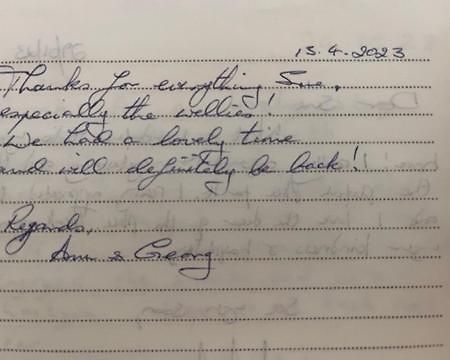 13.4.2023
Thanks for everything Sue,
especially the wellies!
We had a lovely time
and will definitely be back!
Regards,
Ann & Georg